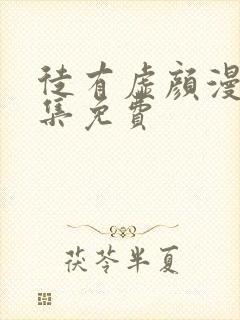 徒有虚颜漫
集免費
茯苓半夏